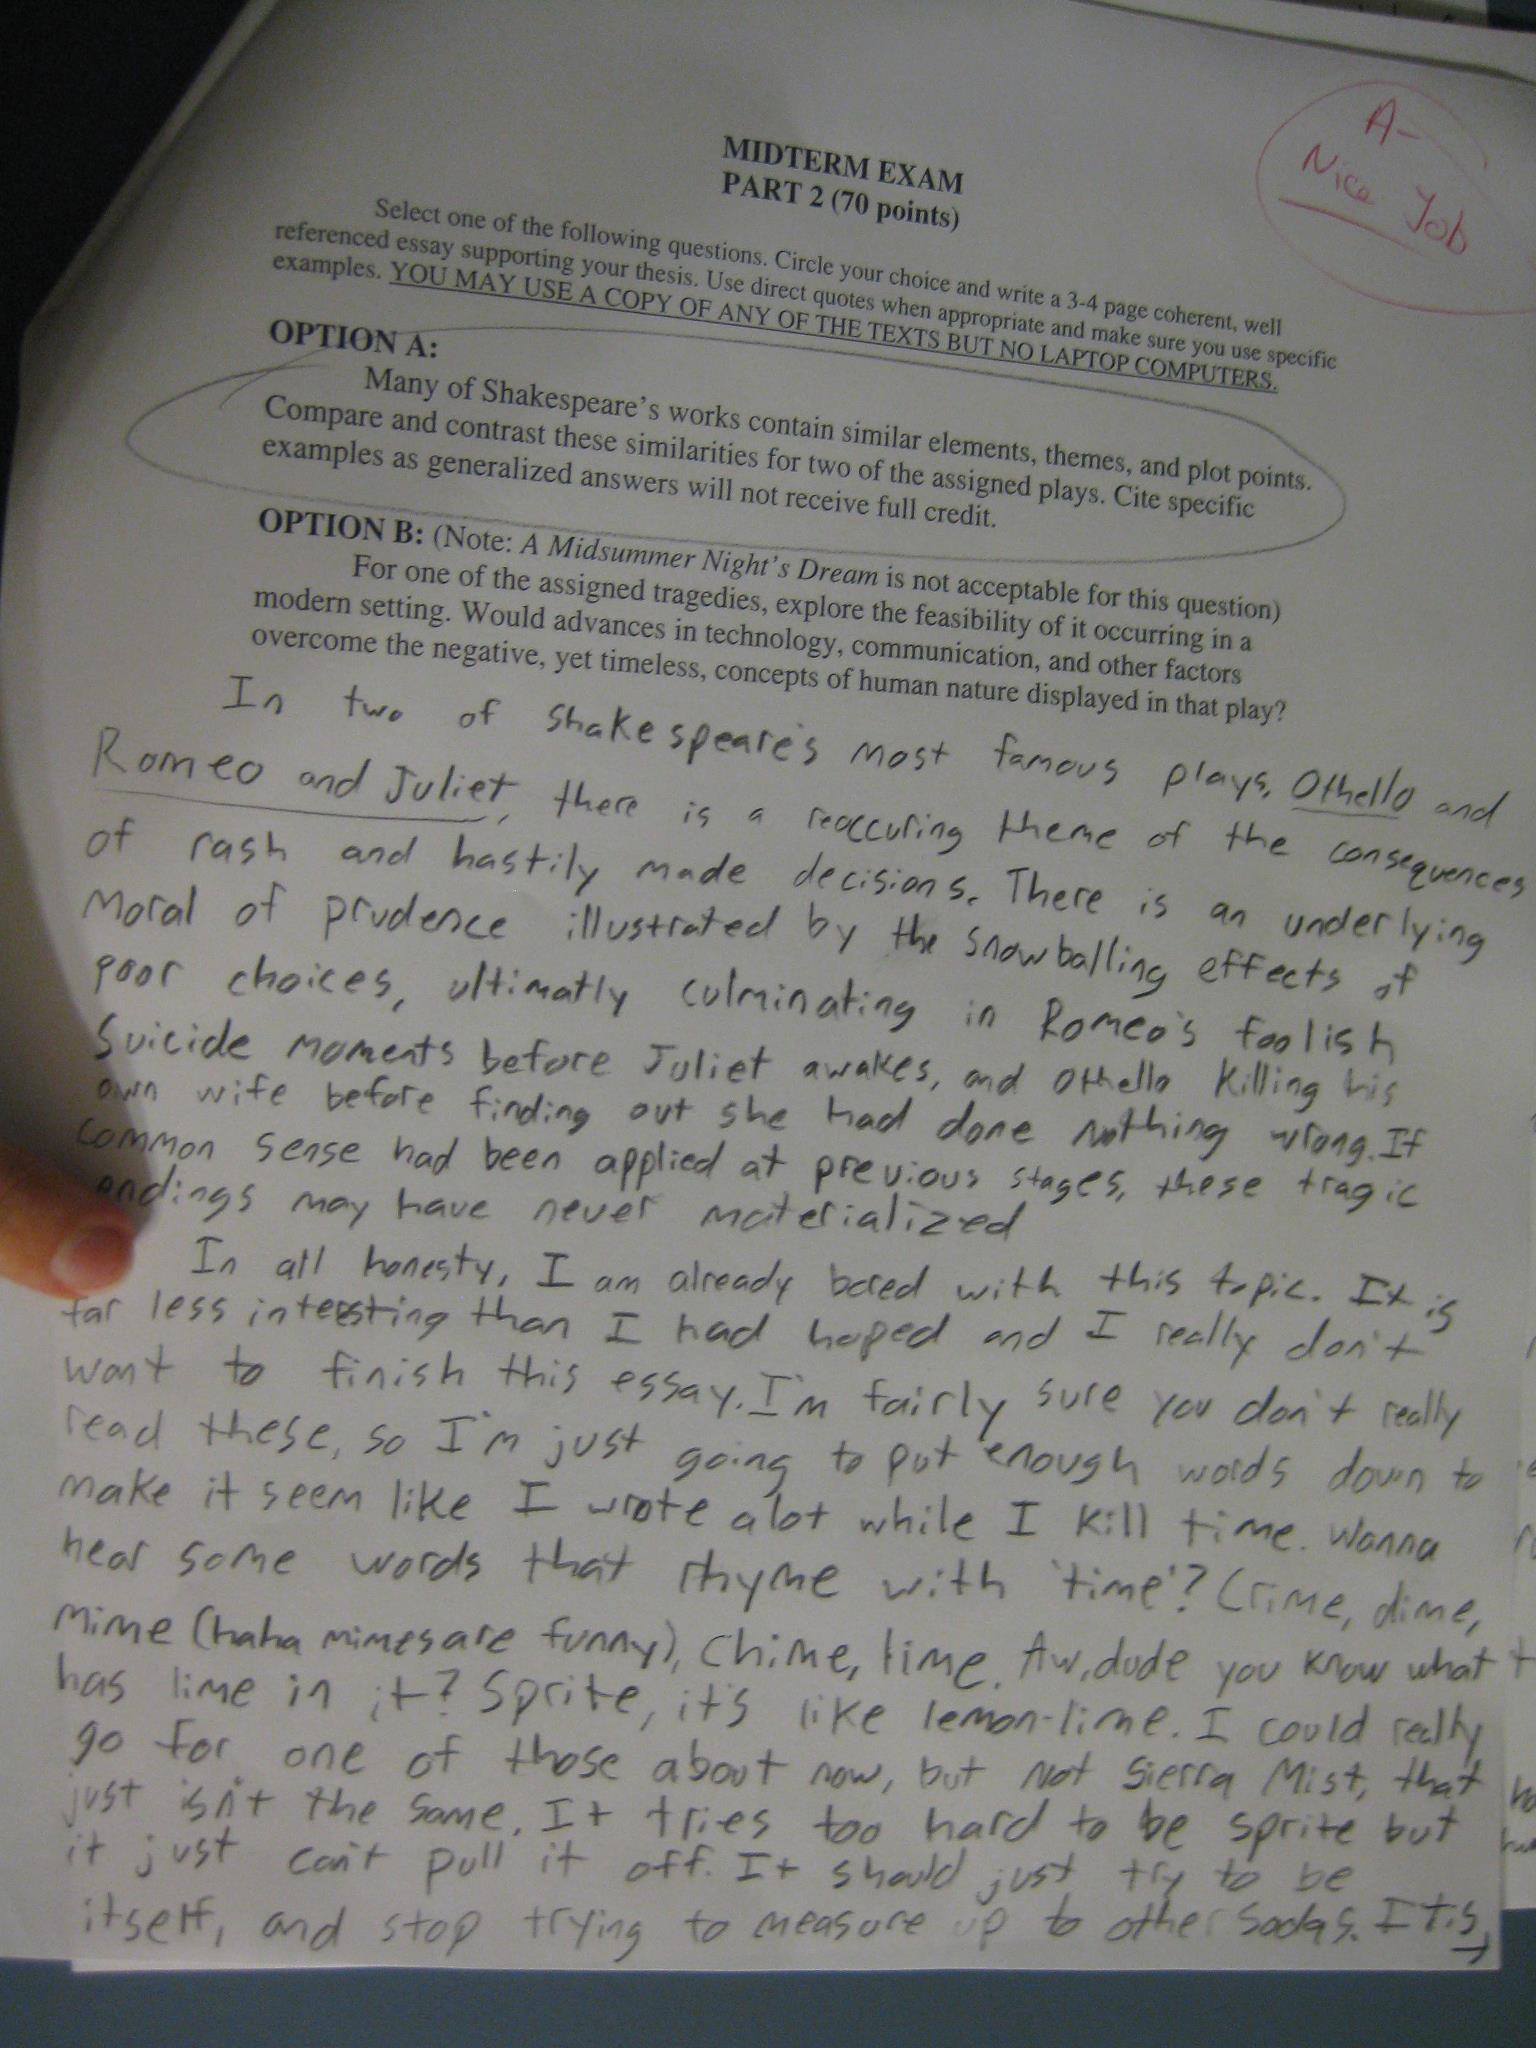 A-
Nice Job
MIDTERM EXAM
PART 2 (70 points)
Select one of the following questions. Circle your choice and write a 3-4 page coherent, well
referenced essay supporting your thesis. Use direct quotes when appropriate and make sure you use specific
examples. YOU MAY USE A COPY OF ANY OF THE TEXTS BUT NO LAPTOP COMPUTERS.
OPTION A:
Many of Shakespeare's works contain similar elements, themes, and plot points.
Compare and contrast these similarities for two of the assigned plays. Cite specific
examples as generalized answers will not receive full credit.
OPTION B: (Note: A Midsummer Night's Dream is not acceptable for this question)
For one of the assigned tragedies, explore the feasibility of it occurring in a
modern setting. Would advances in technology, communication, and other factors
overcome the negative, yet timeless, concepts of human nature displayed in that play?
In two of Shakespeare's most famous plays, Othello and
Romeo and Juliet, there is a reoccuring theme of the consequences
of rash and hastily made decisions. There is an underlying
moral of prudence illustrated by the snowballing effects of
poor choices, ultimatly culminating in Romeo's foolish
suicide moments before Juliet awakes, and Othello killing his
own wife before finding out she had done nothing wrong. If
common sense had been applied at previous stages, these tragic
endings may have never materialized
In all honesty, I am already bored with this topic. It is
far less interesting than I had hoped and I really don't
want to finish this essay. I'm fairly sure you don't really
read these, so I'm just going to put enough words down to
make it seem like I wrote alot while I kill time. Wanna
hear some words that rhyme with 'time'? Crime, dime,
mime (haha mimes are funny), chime, lime. Aw, dude you know what
has lime in it? Sprite, it's like lemon-lime. I could really
go for one of those about now, but not Sierra Mist, that
just isn't the same. It tries too hard to be sprite but
it just can't pull it off. It should just try to be
itself, and stop trying to measure up to other sodas. It is
→